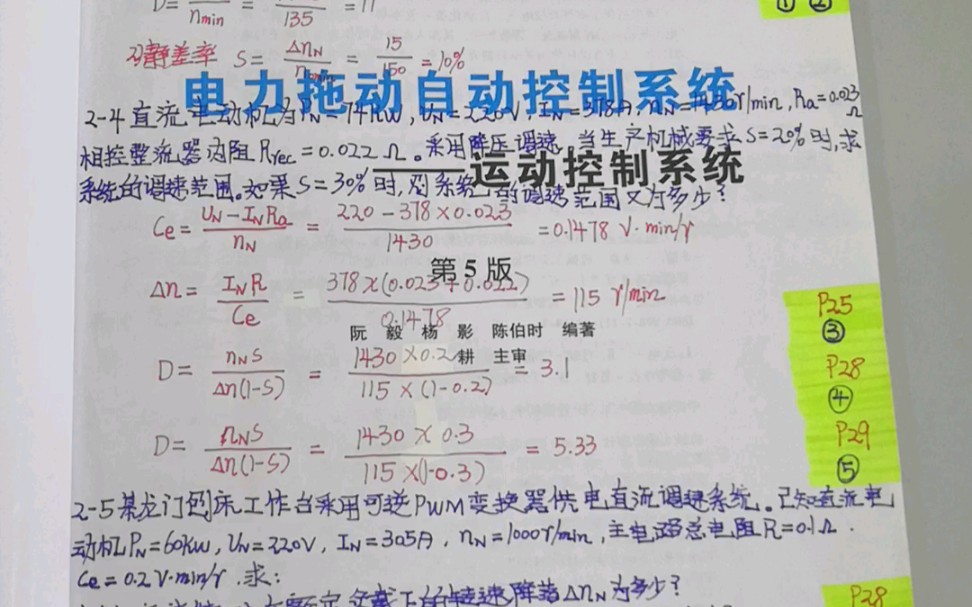 D= ── = ── = 11
n min 135
① ②
2)静差率 S= Δn_N/n_min = 15/150 = 10%
电力拖动自动控制系统
2-4 直流电动机为P_N=74kW, U_N=220V, I_N=378A, n_N=1430r/min, Ra=0.023Ω
相控整流器内阻Rrec=0.022Ω。采用降压调速。当生产机械要求S=20%时,求
——运动控制系统
系统的调速范围。如果S=30%时,则系统的调速范围又为多少?
Ce= (U_N-I_N Ra)/n_N = (220-378×0.023)/1430 =0.1478 V·min/r
第5版
Δn= I_N R/Ce = 378×(0.023+0.022)/0.1478 =115 r/min
P25
③
阮 毅 杨 影 陈伯时 编著
耕 主审
D= n_N S/Δn(1-S) = 1430×0.2/115×(1-0.2) = 3.1
P28
④
D= n_N S/Δn(1-S) = 1430×0.3/115×(1-0.3) = 5.33
P29
⑤
2-5 某龙门刨床工作台采用可逆PWM变换器供电直流调速系统。已知直流电
动机P_N=60kW, U_N=220V, I_N=305A, n_N=1000r/min, 主电路总电阻R=0.1Ω.
Ce=0.2V·min/r .求:
在额定负载下的转速降落Δn_N为多少?
P28